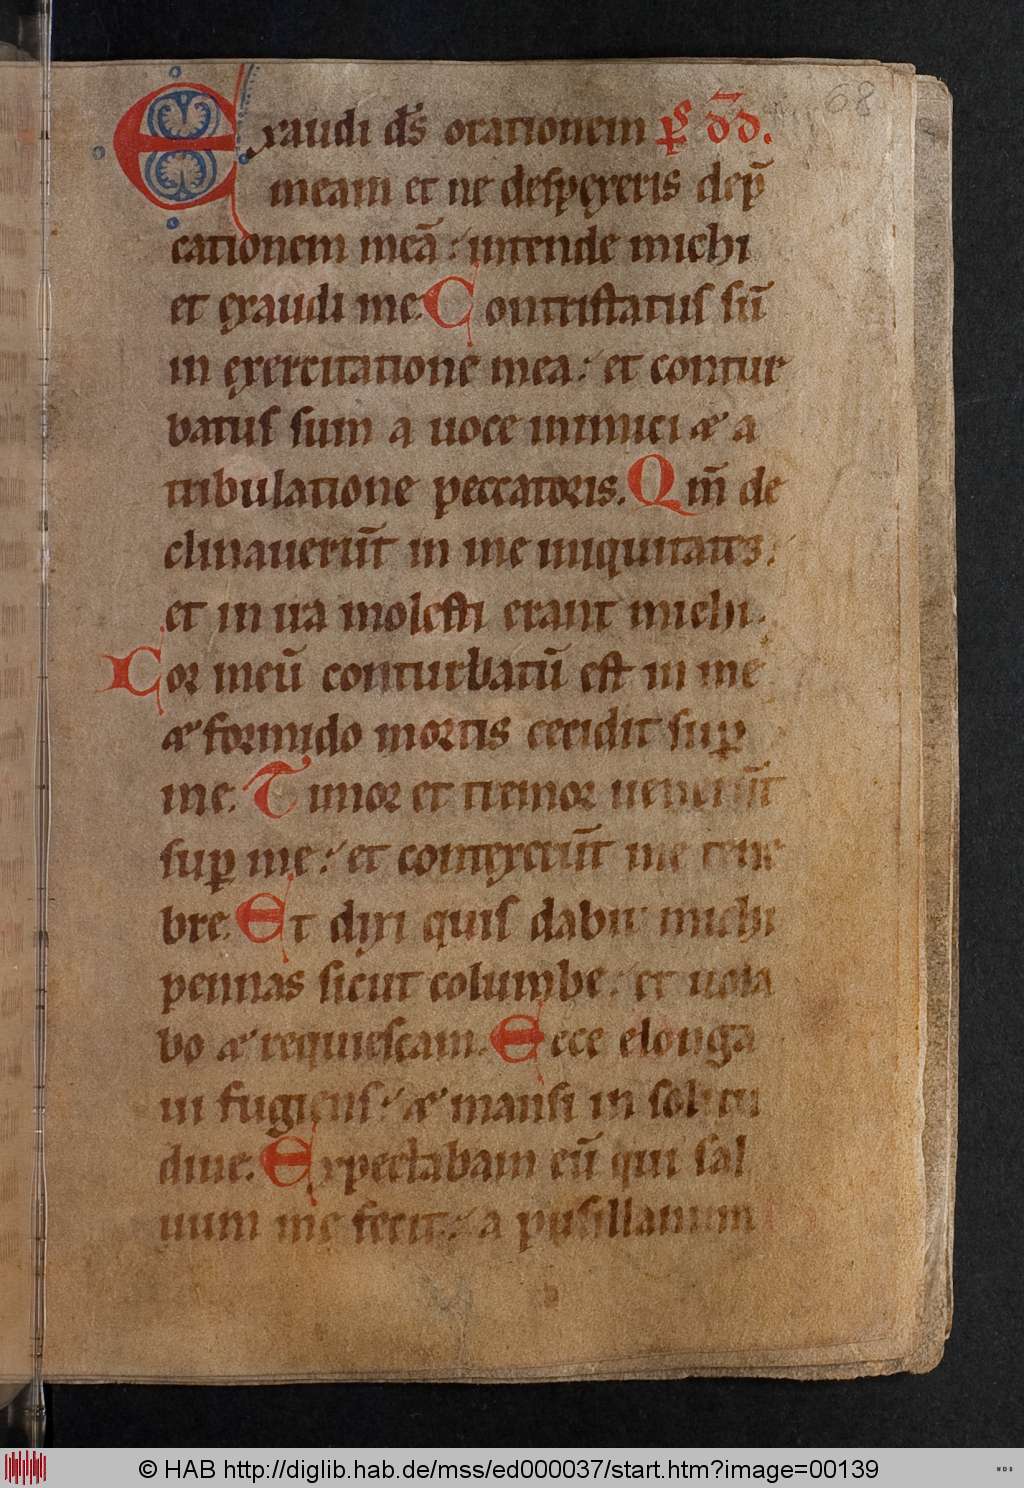 68
Exaudi ds̄ orationem ps̄ dd̄.
meam et ne despexeris dep̄
cationem meā : intende michi
et exaudi me. Contristatus sū
in exercitatione mea : et contur
batus sum a uoce inimici & a
tribulatione peccatoris. Qm̄ de
clinauerūt in me iniquitates :
et in ira molesti erant michi.
Cor meū conturbatū est in me
& formido mortis cecidit suꝑ
me. Timor et tremor uenerūt
suꝑ me : et contexerūt me tene
bre. Et dixi quis dabit michi
pennas sicut columbe : et uola
bo & requiescam. Ecce elonga
ui fugiens : & mansi in solitu
dine. Expectabam eū qui sal
uum me fecit : a pusillanim
© HAB http://diglib.hab.de/mss/ed000037/start.htm?image=00139